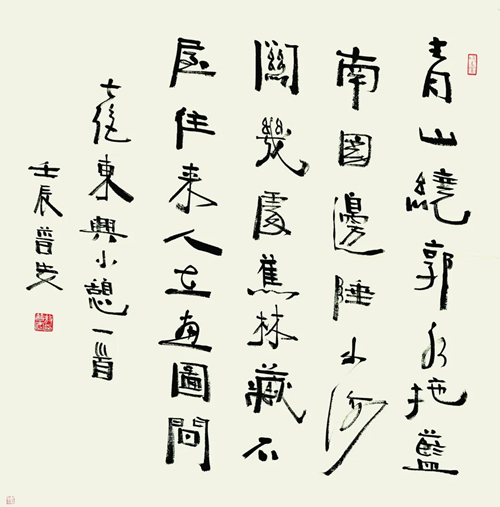 青山繞郭水拖藍
南國邊陲小河
關幾處蕉林藏石
屋往來人在畫圖間
七絕東興小憩一首
壬辰